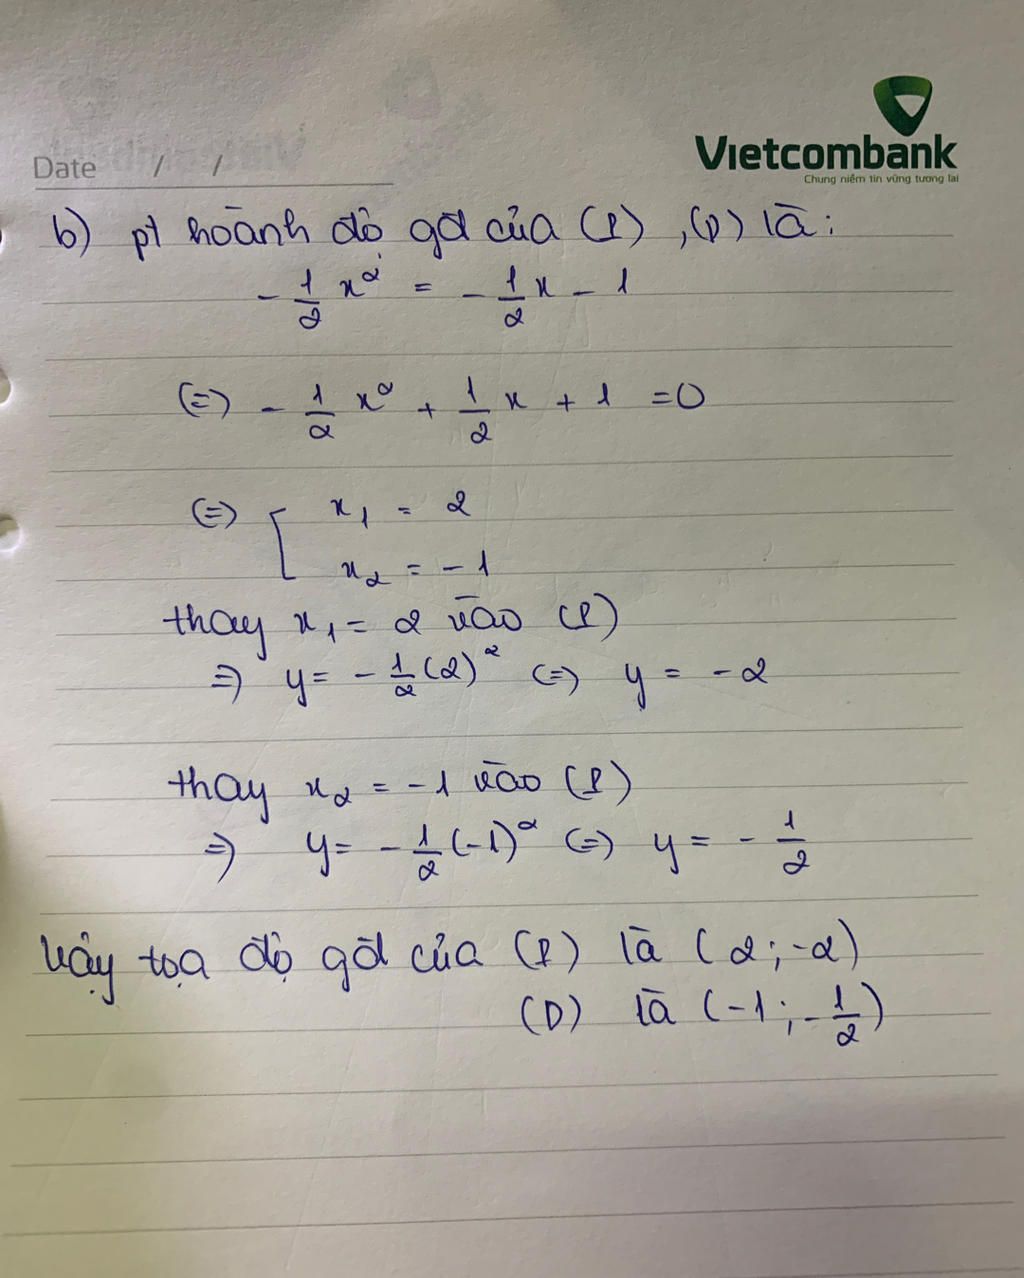 Vietcombank
Chung niềm tin vững tương lai
Date / /
b) pt hoành độ gđ của (P), (D) là:
-1/2 x² = -1/2 x - 1
(=) -1/2 x² + 1/2 x + 1 = 0
(=) [ x₁ = 2
x₂ = -1
thay x₁ = 2 vào (P)
=) y = -1/2 (2)² (=) y = -2
thay x₂ = -1 vào (P)
=) y = -1/2 (-1)² (=) y = -1/2
Vậy tọa độ gđ của (P) là (2; -2)
(D) là (-1; -1/2)